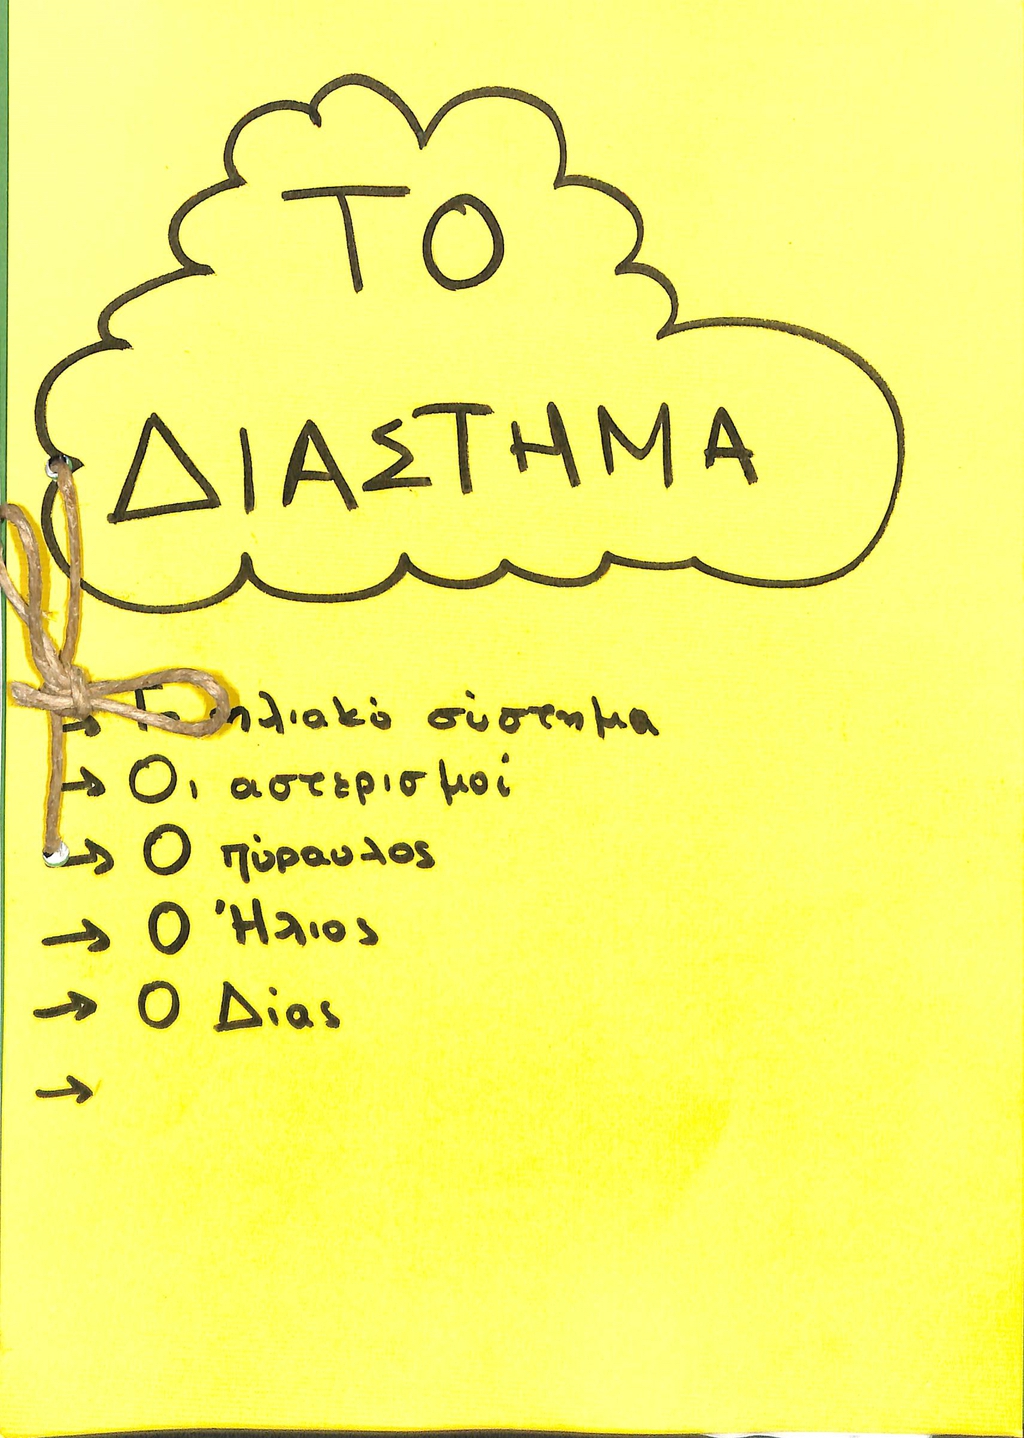 ΤΟ
ΔΙΑΣΤΗΜΑ
→ Το ηλιακό σύστημα
→ Οι αστερισμοί
→ Ο πύραυλος
→ Ο Ήλιος
→ Ο Δίας
→